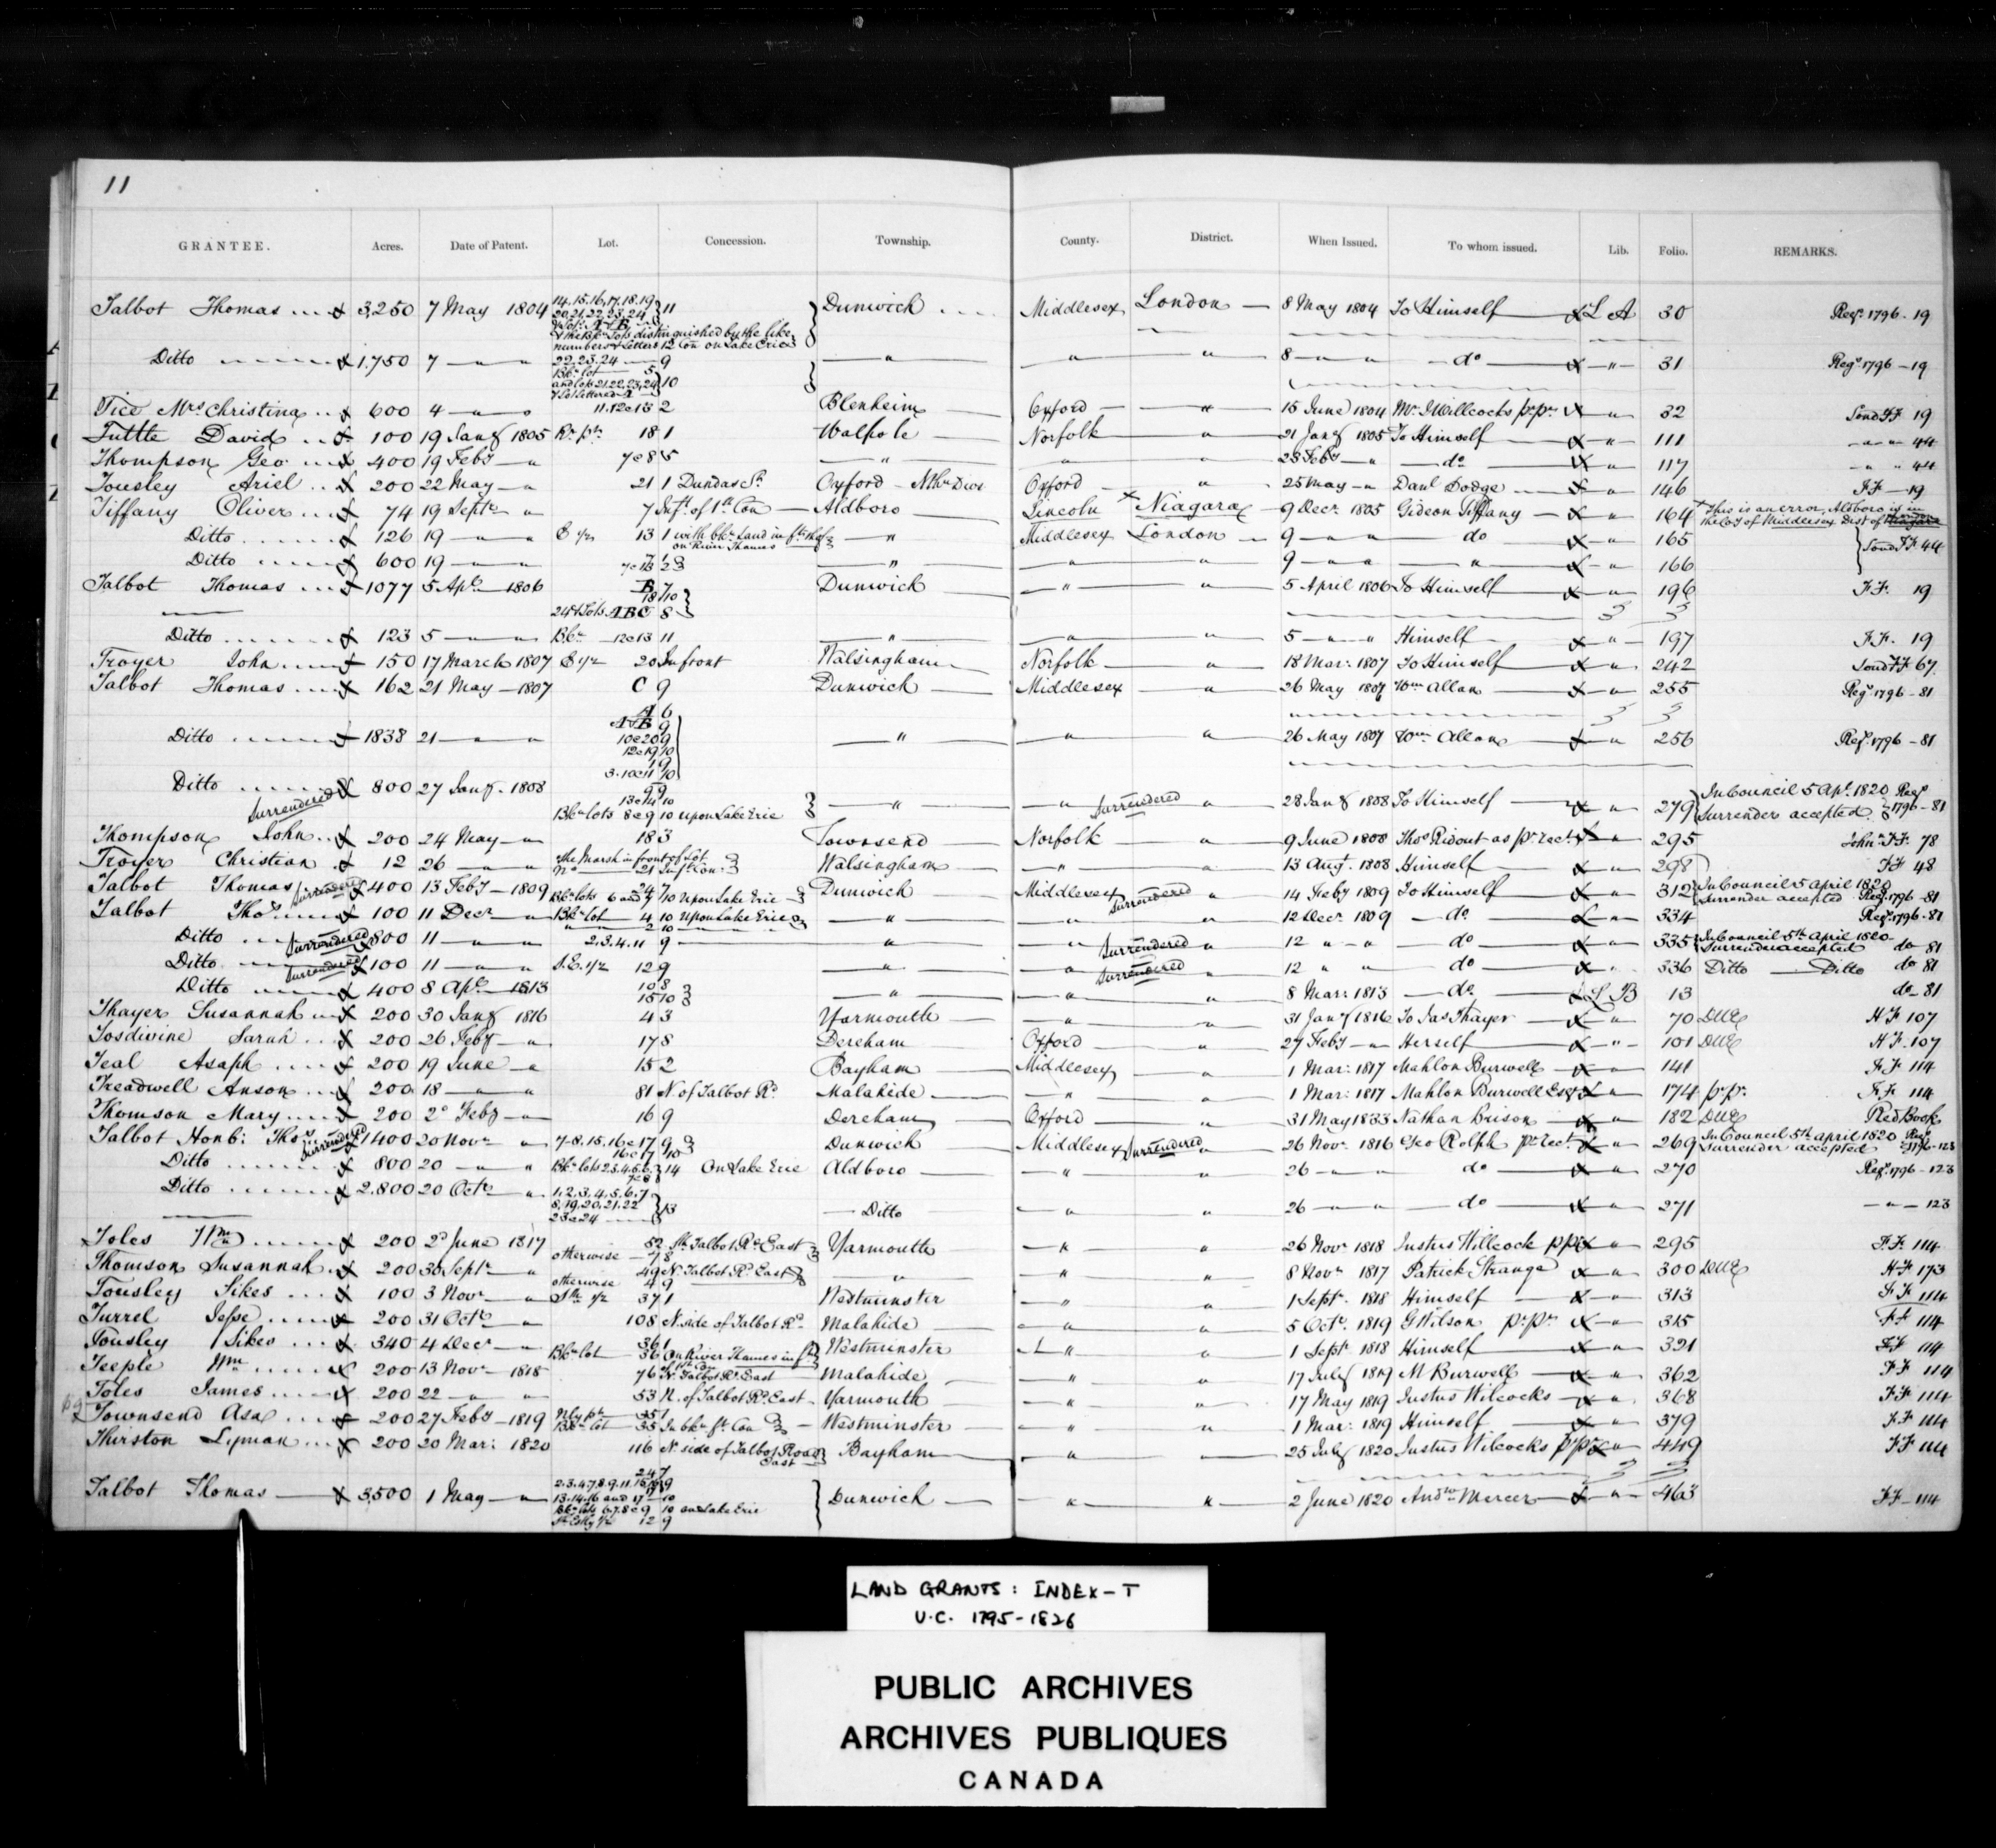 11
GRANTEE. Acres. Date of Patent. Lot. Concession. Township. County. District. When Issued. To whom issued. Lib. Folio. REMARKS.
Talbot Thomas 3,250 7 May 1804 14.15.16.17.18.19 20.21.22.23.24 11 Dunwich Middlesex London 8 May 1804 To Himself L A 30 Regr 1796 - 19
& the Bkn Lots distinguished by the like
numbers & Letters 12 Con on Lake Erie
Ditto 1.750 7 " " 22.23.24 9 " " " 8 " " do " 31 Regr 1796 - 19
Bkn lot 5
and lots 21.22.23.24 10
Tice Mrs Christina 600 4 " " 11.12 & 13 2 Blenheim Oxford " 15 June 1804 Mr. J Willcocks pr pr " 32 Sond FF 19
Tuttle David 100 19 Jany 1805 Rr pt 18 1 Walpole Norfolk " 21 Jany 1805 To Himself " 111 " " 44
Thompson Geo 400 19 Feby " 7 & 8 5 " " " 23 Feby " do " 117 " " 44
Tousley Ariel 200 22 May " 21 1 Dundas St Oxford Nthn Divn Oxford " 25 May " Danl Dodge " 146 FF 19
Tiffany Oliver 74 19 Septr " 7 In ft of 1st Con Aldboro Lincoln Niagara 9 Decr 1805 Gideon Tiffany " 164 This is an error, Aldboro is in
the Coy of Middlesex Dist of Niagara
Ditto 126 19 " " E ½ 13 1 with bkn Land in ft thereof " Middlesex London 9 " " do " 165 Sond FF 44
on River Thames
Ditto 600 19 " " 7 1 " " " 9 " " " " 166
7 & 13 2
Talbot Thomas 1077 5 Apl 1806 B 7 Dunwich " " 5 April 1806 To Himself " 196 FF. 19
18 10
24 & Lots A B C 8
Ditto 123 5 " " Bkn 12 & 13 11 " " " 5 " " Himself " 197 FF. 19
Troyer John 150 17 March 1807 E ½ 20 In front Walsingham Norfolk " 18 Mar: 1807 To Himself " 242 Sond FF 67
Talbot Thomas 162 21 May 1807 C 9 Dunwich Middlesex " 26 May 1807 Wm Allan " 255 Regr 1796 - 81
A 6
A & B 9
Ditto 1838 21 " " 10 & 20 9 " " " 26 May 1807 Wm Allan " 256 Regr 1796 - 81
12 & 19 10
3.10 & 11 10
Ditto 800 27 Jany 1808 13 & 14 10 " " " 28 Jany 1808 To Himself " 279 In Council 5 Apl 1820 Regr
Surrendered Bkn lots 8 & 9 10 upon Lake Erie Surrendered Surrender accepted 1796 - 81
Thompson John 200 24 May " 18 3 Townsend Norfolk " 9 June 1808 Thos Ridout as pr rect " 295 John FF 78
Troyer Christian 12 26 " " The Marsh in front of Lot Walsingham " " 13 Augt 1808 Himself " 298 FF 48
No 21 In ft Con:
Talbot Thomas Surrendered 400 13 Feby 1809 24 7 Dunwich Middlesex Surrendered " 14 Feby 1809 To Himself " 312 In Council 5 April 1820
Bkn lots 6 and 7 10 Upon Lake Erie Surrender accepted Regr 1796 - 81
Talbot Thos 100 11 Decr " Bkn lot 4 10 Upon Lake Erie " " " 12 Decr 1809 do " 334 Regr 1796 - 81
Ditto Surrendered 800 11 " " 2.3.4.11 9 " " Surrendered " 12 " " do " 335 In Council 5th April 1820
Surrender accepted do 81
Ditto Surrendered 100 11 " " S.E. ½ 12 9 " " Surrendered " 12 " " do " 336 Ditto Ditto do 81
Ditto 400 8 Apl 1813 10 8 " " " 8 Mar: 1813 do L B 13 do 81
15 10
Thayer Susannah 200 30 Jany 1816 4 3 Yarmouth " " 31 Jany 1816 To Jas Thayer " 70 DUE HF 107
Tosdivine Sarah 200 26 Feby " 17 8 Dereham Oxford " 27 Feby " Herself " 101 DUE HF. 107
Teal Asaph 200 19 June " 15 2 Bayham Middlesex " 1 Mar: 1817 Mahlon Burwell " 141 FF 114
Treadwell Anson 200 18 " " 81 N. of Talbot Rd Malahide " " 1 Mar: 1817 Mahlon Burwell Esqr " 174 pr pr. FF 114
Thomson Mary 200 2d Feby " 16 9 Dereham Oxford " 31 May 1833 Nathan Brison " 182 DUE Red Book
Talbot Honb: Thos Surrendered 1400 20 Novr " 7.8.15.16 & 17 9 Dunwich Middlesex Surrendered " 26 Novr 1816 Geo Rolph pr rect " 269 In Council 5th April 1820 Regr
16 & 17 10 Surrender accepted 1796 - 123
Ditto 800 20 " " Bkn lots 2.3.4.5.6. 14 On Lake Erie Aldboro " " 26 " " do " 270 Regr 1796 - 123
7 & 8
Ditto 2.800 20 Octr " 1.2.3.4.5.6.7. 13 Ditto " " 26 " " do " 271 " 123
8.19.20.21.22
23 & 24
Toles Wm 200 2d June 1817 82 Sth Talbot Rd East Yarmouth " " 26 Novr 1818 Justus Willcock p pr " 295 FF. 114
otherwise 7 8
Thomson Susannah 200 30 Septr " 49 N. Talbot Rd East " " " 8 Novr 1817 Patrick Strange " 300 DUE HF 173
otherwise 4 9
Tousley Sikes 100 3 Novr " Sth ½ 37 1 Westminster " " 1 Septr 1818 Himself " 313 FF 114
Turrel Jesse 200 31 Octr " 108 N. side of Talbot Rd Malahide " " 5 Octr. 1819 G Wilson pr pr " 315 FF 114
Tousley Sikes 340 4 Decr " 36 1 Westminster " " 1 Septr 1818 Himself " 321 FF 114
Bkn lot 36 On River Thames in ft
of 1st Con
Teeple Wm 200 13 Novr 1818 76 N. Talbot Rd East Malahide " " 17 July 1819 M Burwell " 362 FF 114
Toles James 200 22 " " 53 N. of Talbot Rd East Yarmouth " " 17 May 1819 Justus Wilcocks " 368 FF 114
Townsend Asa 200 27 Feby 1819 Nly pt 35 1 Westminster " " 1 Mar: 1819 Himself " 379 FF 114
Bkn lot 35 In bkn ft Con
Thirston Lyman 200 20 Mar: 1820 116 N. side of Talbot Road Bayham " " 25 July 1820 Justus Wilcocks pr pr " 449 FF 114
East
24 7
Talbot Thomas 3,500 1 May " 2.3.4.7.8.9.11. 9 Dunwich " " 2 June 1820 Andw Mercer " 463 FF 114
13.14.16 and 17 10
Bkn lots 6.7.8 & 9 10 on Lake Erie
12 9
LAND GRANTS: INDEX-T
U.C. 1795-1826
PUBLIC ARCHIVES
ARCHIVES PUBLIQUES
CANADA